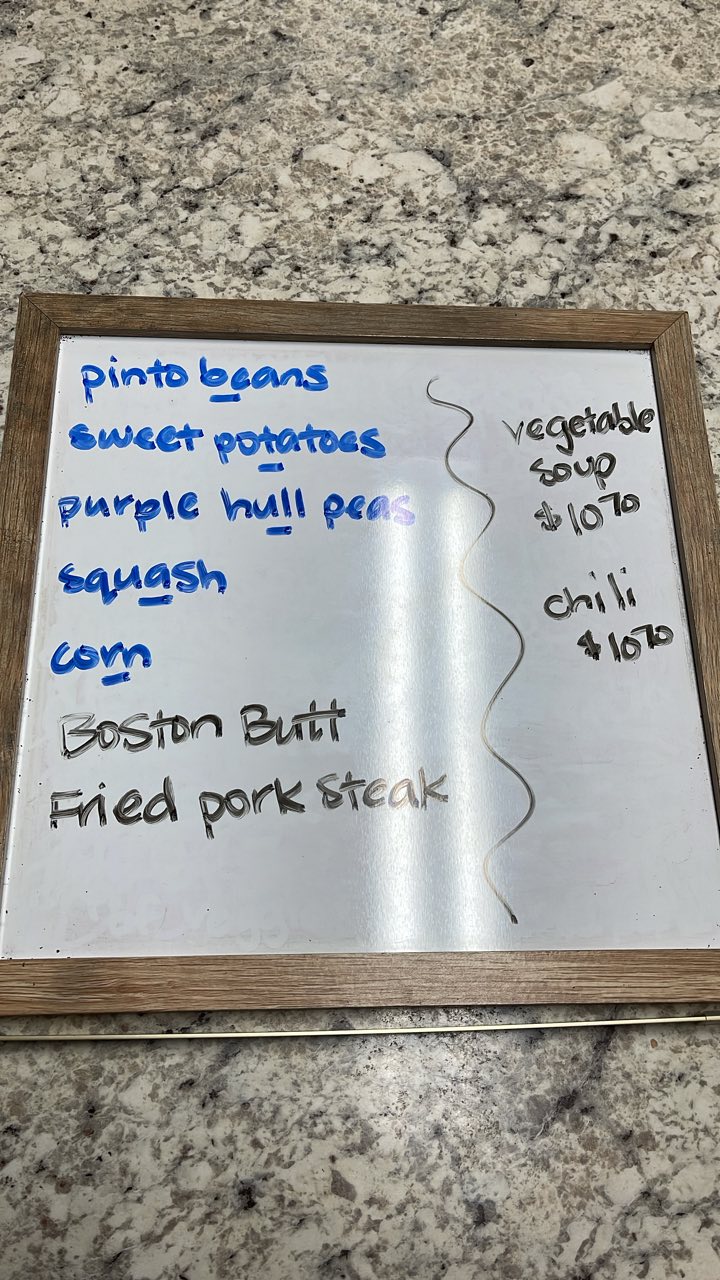 pinto beans
sweet potatoes
purple hull peas
squash
corn
Boston Butt
Fried pork steak
vegetable
soup
$10 70
chili
$10 70